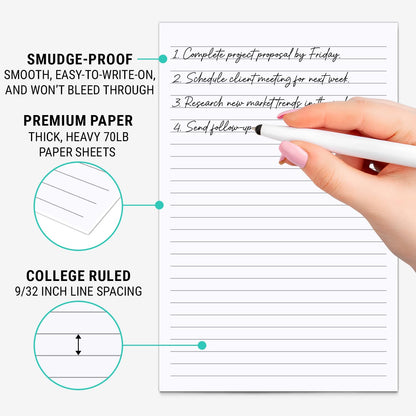 SMUDGE-PROOF
SMOOTH, EASY-TO-WRITE-ON,
AND WON'T BLEED THROUGH
PREMIUM PAPER
THICK, HEAVY 70LB
PAPER SHEETS
COLLEGE RULED
9/32 INCH LINE SPACING
1. Complete project proposal by Friday.
2. Schedule client meeting for next week.
3. Research new market trends in the
4. Send follow-up